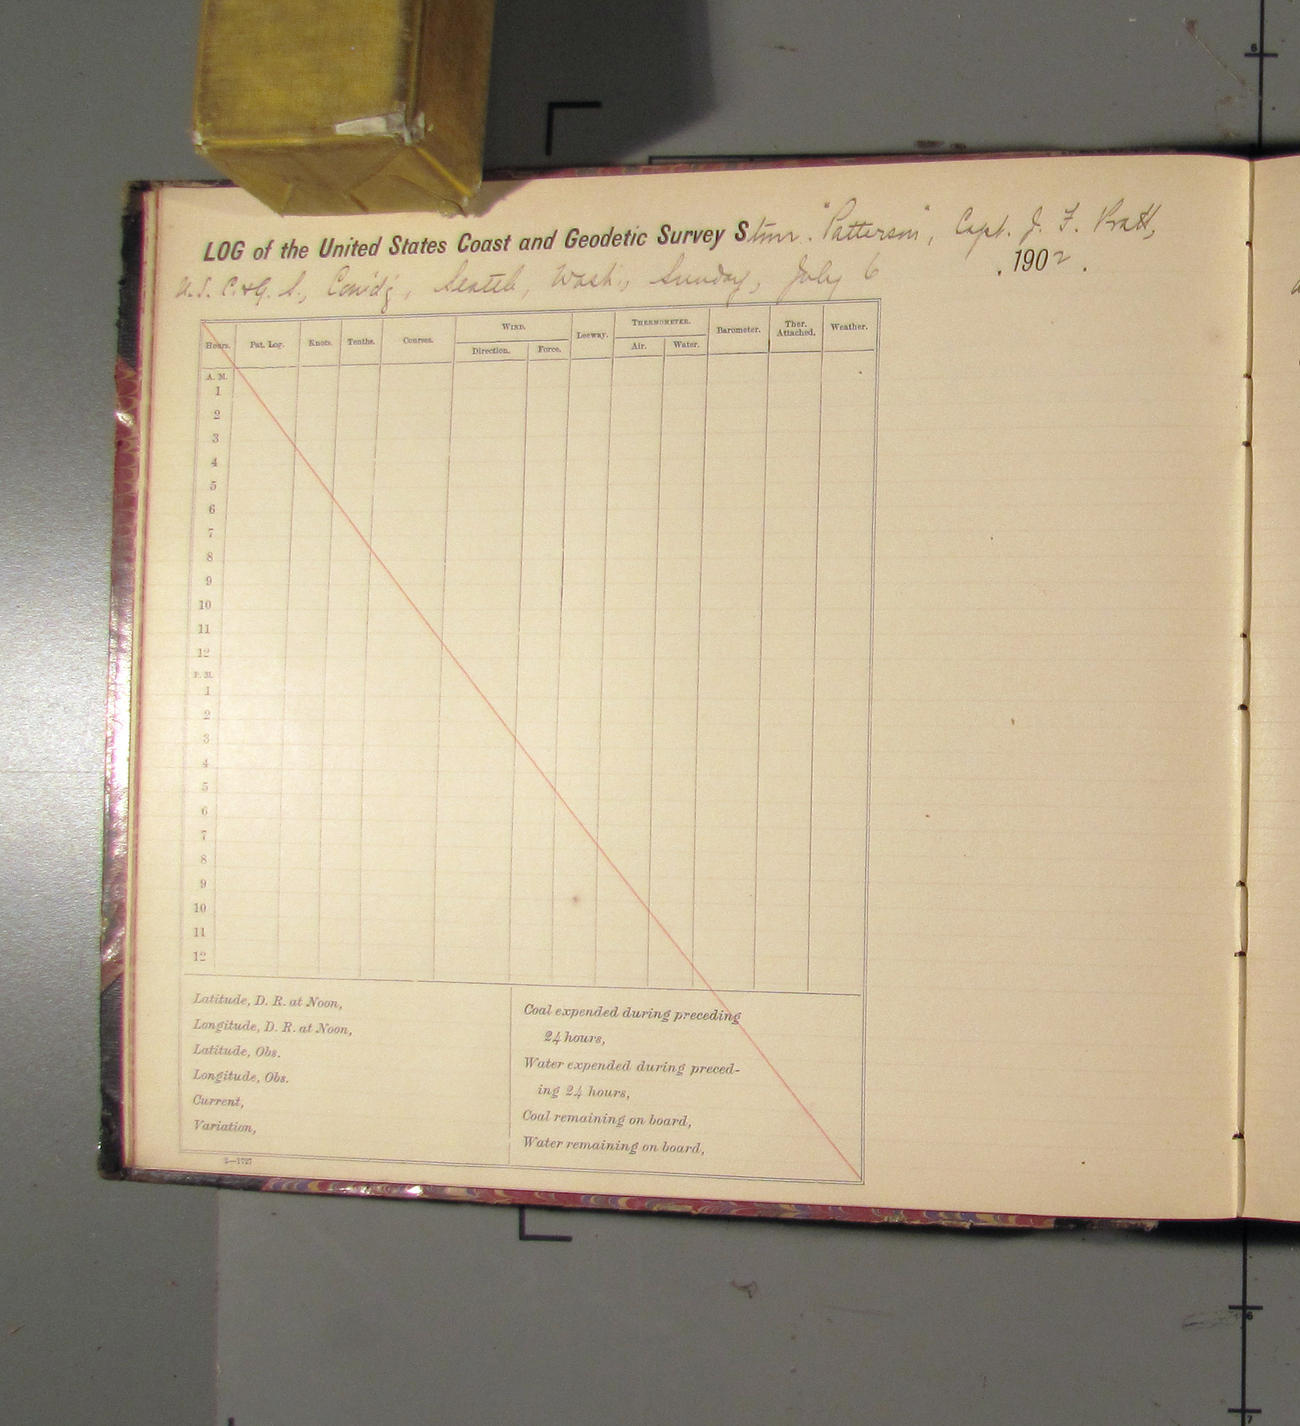 LOG of the United States Coast and Geodetic Survey Stmr. "Patterson", Capt. J. F. Pratt,
U.S. C. & G. S., Com'd'g, Seattle, Wash., Sunday, July 6, 1902.
Hours. Pat. Log. Knots. Tenths. Courses. WIND. Leeway. THERMOMETER. Barometer. Ther. Attached. Weather.
Direction. Force. Air. Water.
A. M.
1
2
3
4
5
6
7
8
9
10
11
12
P. M.
1
2
3
4
5
6
7
8
9
10
11
12
Latitude, D. R. at Noon,
Longitude, D. R. at Noon,
Latitude, Obs.
Longitude, Obs.
Current,
Variation,
Coal expended during preceding
24 hours,
Water expended during preced-
ing 24 hours,
Coal remaining on board,
Water remaining on board,
6
6
7